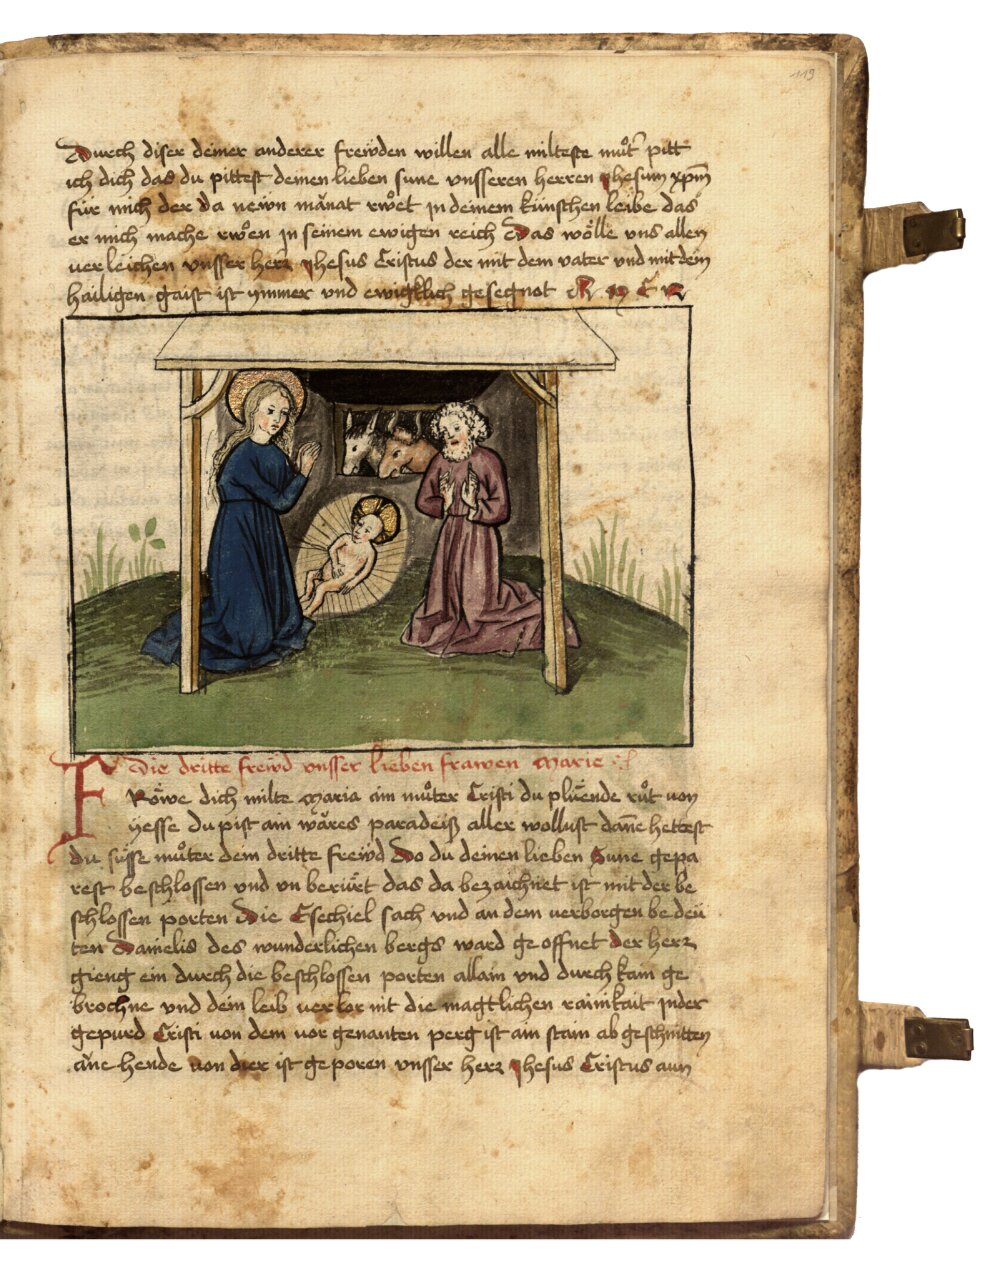 119
Durch diser deiner anderer frewden willen alle milteste muͦter pitt
ich dich das du pittest deinen lieben sune vnsseren herren ihesum xpm̄
für mich der da newn mānat rwͦet in deinem künschen leibe das
er mich mache rwͦen in seinem ewigen reich Das wölle vns allen
verleichen vnsser herr ihesus Cristus der mit dem vater vnd mit dem
hailigen gaist ist ymmer vnd ewigklich gesegnot
Die dritte frewd vnsser lieben frawen Marie
FRöwe dich milte Maria ain muͦter Cristi du plüende ruͦt von
yesse du pist ain wäres paradeiß aller wollust dañe hettest
du süsse muͦter dein dritte frewd Do du deinen lieben Sune gepa
rest beschlossen vnd vn berürt das da bezaichnet ist mit der be
schlossen porten Die Esechiel sach vnd an dem verborgen bedeü
ten Danielis des wunderlichen bergs ward geoffnet der herr
gieng ein durch die beschlossen porten allain vnd durch kain ge
brochne vnd dein leib verlor nit die magtlichen rainikait in der
gepurd Cristi von dem vor genanten perg ist ain stain ab geschnitten
āne hende von dier ist geporen vnsser herr ihesus Cristus aun